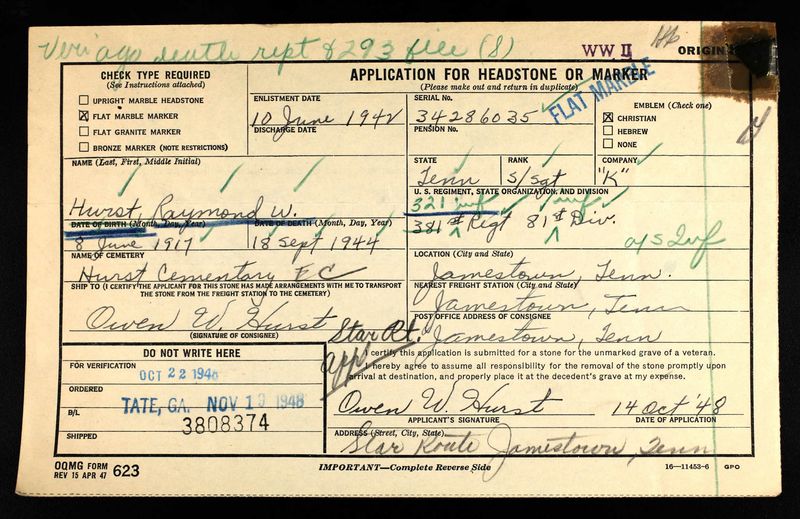 Veri ago death rept 8293 file (8)
WW II
ORIGIN
CHECK TYPE REQUIRED
(See Instructions attached)
☐ UPRIGHT MARBLE HEADSTONE
☒ FLAT MARBLE MARKER
☐ FLAT GRANITE MARKER
☐ BRONZE MARKER (NOTE RESTRICTIONS)
APPLICATION FOR HEADSTONE OR MARKER
(Please make out and return in duplicate)
FLAT MARBLE
ENLISTMENT DATE
10 June 1942
DISCHARGE DATE
SERIAL No.
34286035
PENSION No.
EMBLEM (Check one)
☒ CHRISTIAN
☐ HEBREW
☐ NONE
NAME (Last, First, Middle Initial)
Hurst, Raymond W.
STATE
Tenn
RANK
S/Sgt
COMPANY
"K"
U. S. REGIMENT, STATE ORGANIZATION, AND DIVISION
321 inf inf
381st Regt 81st Div.
o/s Inf
DATE OF BIRTH (Month, Day, Year)
8 June 1917
DATE OF DEATH (Month, Day, Year)
18 Sept 1944
NAME OF CEMETERY
Hurst Cementary F C
LOCATION (City and State)
Jamestown, Tenn.
SHIP TO (I CERTIFY THE APPLICANT FOR THIS STONE HAS MADE ARRANGEMENTS WITH ME TO TRANSPORT
THE STONE FROM THE FREIGHT STATION TO THE CEMETERY)
Owen W. Hurst
(SIGNATURE OF CONSIGNEE)
NEAREST FREIGHT STATION (City and State)
Jamestown, Tenn
POST OFFICE ADDRESS OF CONSIGNEE
Star Rt. Jamestown, Tenn
DO NOT WRITE HERE
FOR VERIFICATION
OCT 22 1948
ORDERED
TATE, GA. NOV 10 1948
B/L
3808374
SHIPPED
App
I certify this application is submitted for a stone for the unmarked grave of a veteran.
I hereby agree to assume all responsibility for the removal of the stone promptly upon
arrival at destination, and properly place it at the decedent's grave at my expense.
Owen W. Hurst
APPLICANT'S SIGNATURE
14 Oct '48
DATE OF APPLICATION
ADDRESS (Street, City, State)
Star Route, Jamestown, Tenn
OQMG FORM
REV 15 APR 47 623
IMPORTANT—Complete Reverse Side
16—11453-6 GPO